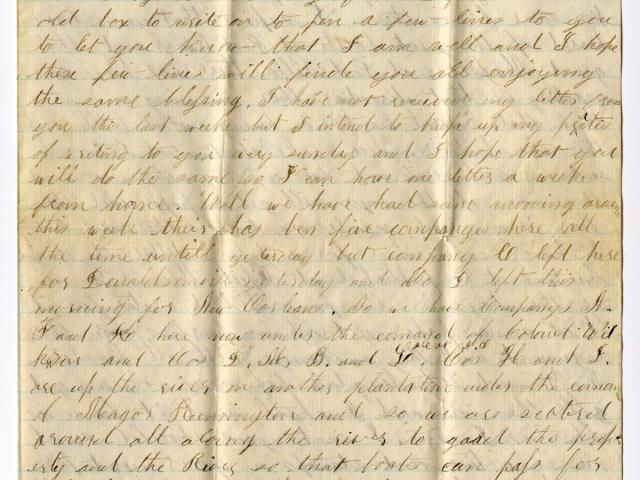 old box to write on to pen a few lines to you
to let you know that I am well and I hope
these few lines will finde you all enjoying
the same blessing. I have not received my letter from
you the last weeke but I intend to keepe up my
of writing to you evry sunday and I hope that you
will do the same so I can have one letter a weeke
from home. Well we have had some mooving
this week their has ben five companyes here all
the time untill yesterday but company left here
for Donaldsonvill yesterday and I left this
morning for New Orleans. So we have Companys A.
F and K here now under the comand of Colonel
and Cos D. B. and Cos H and I.
are up the river on another plantation under the
of Magor and so we are scatered
around all along the river to gaurd the prop
erty and the River so that boates can pass for